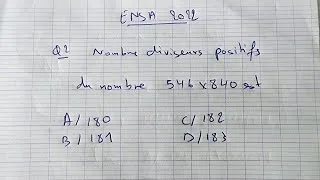 ENSA 2022
Q2 Nombre diviseurs positifs
du nombre 546 x 840 est
A/180 C/182
B/181 D/183